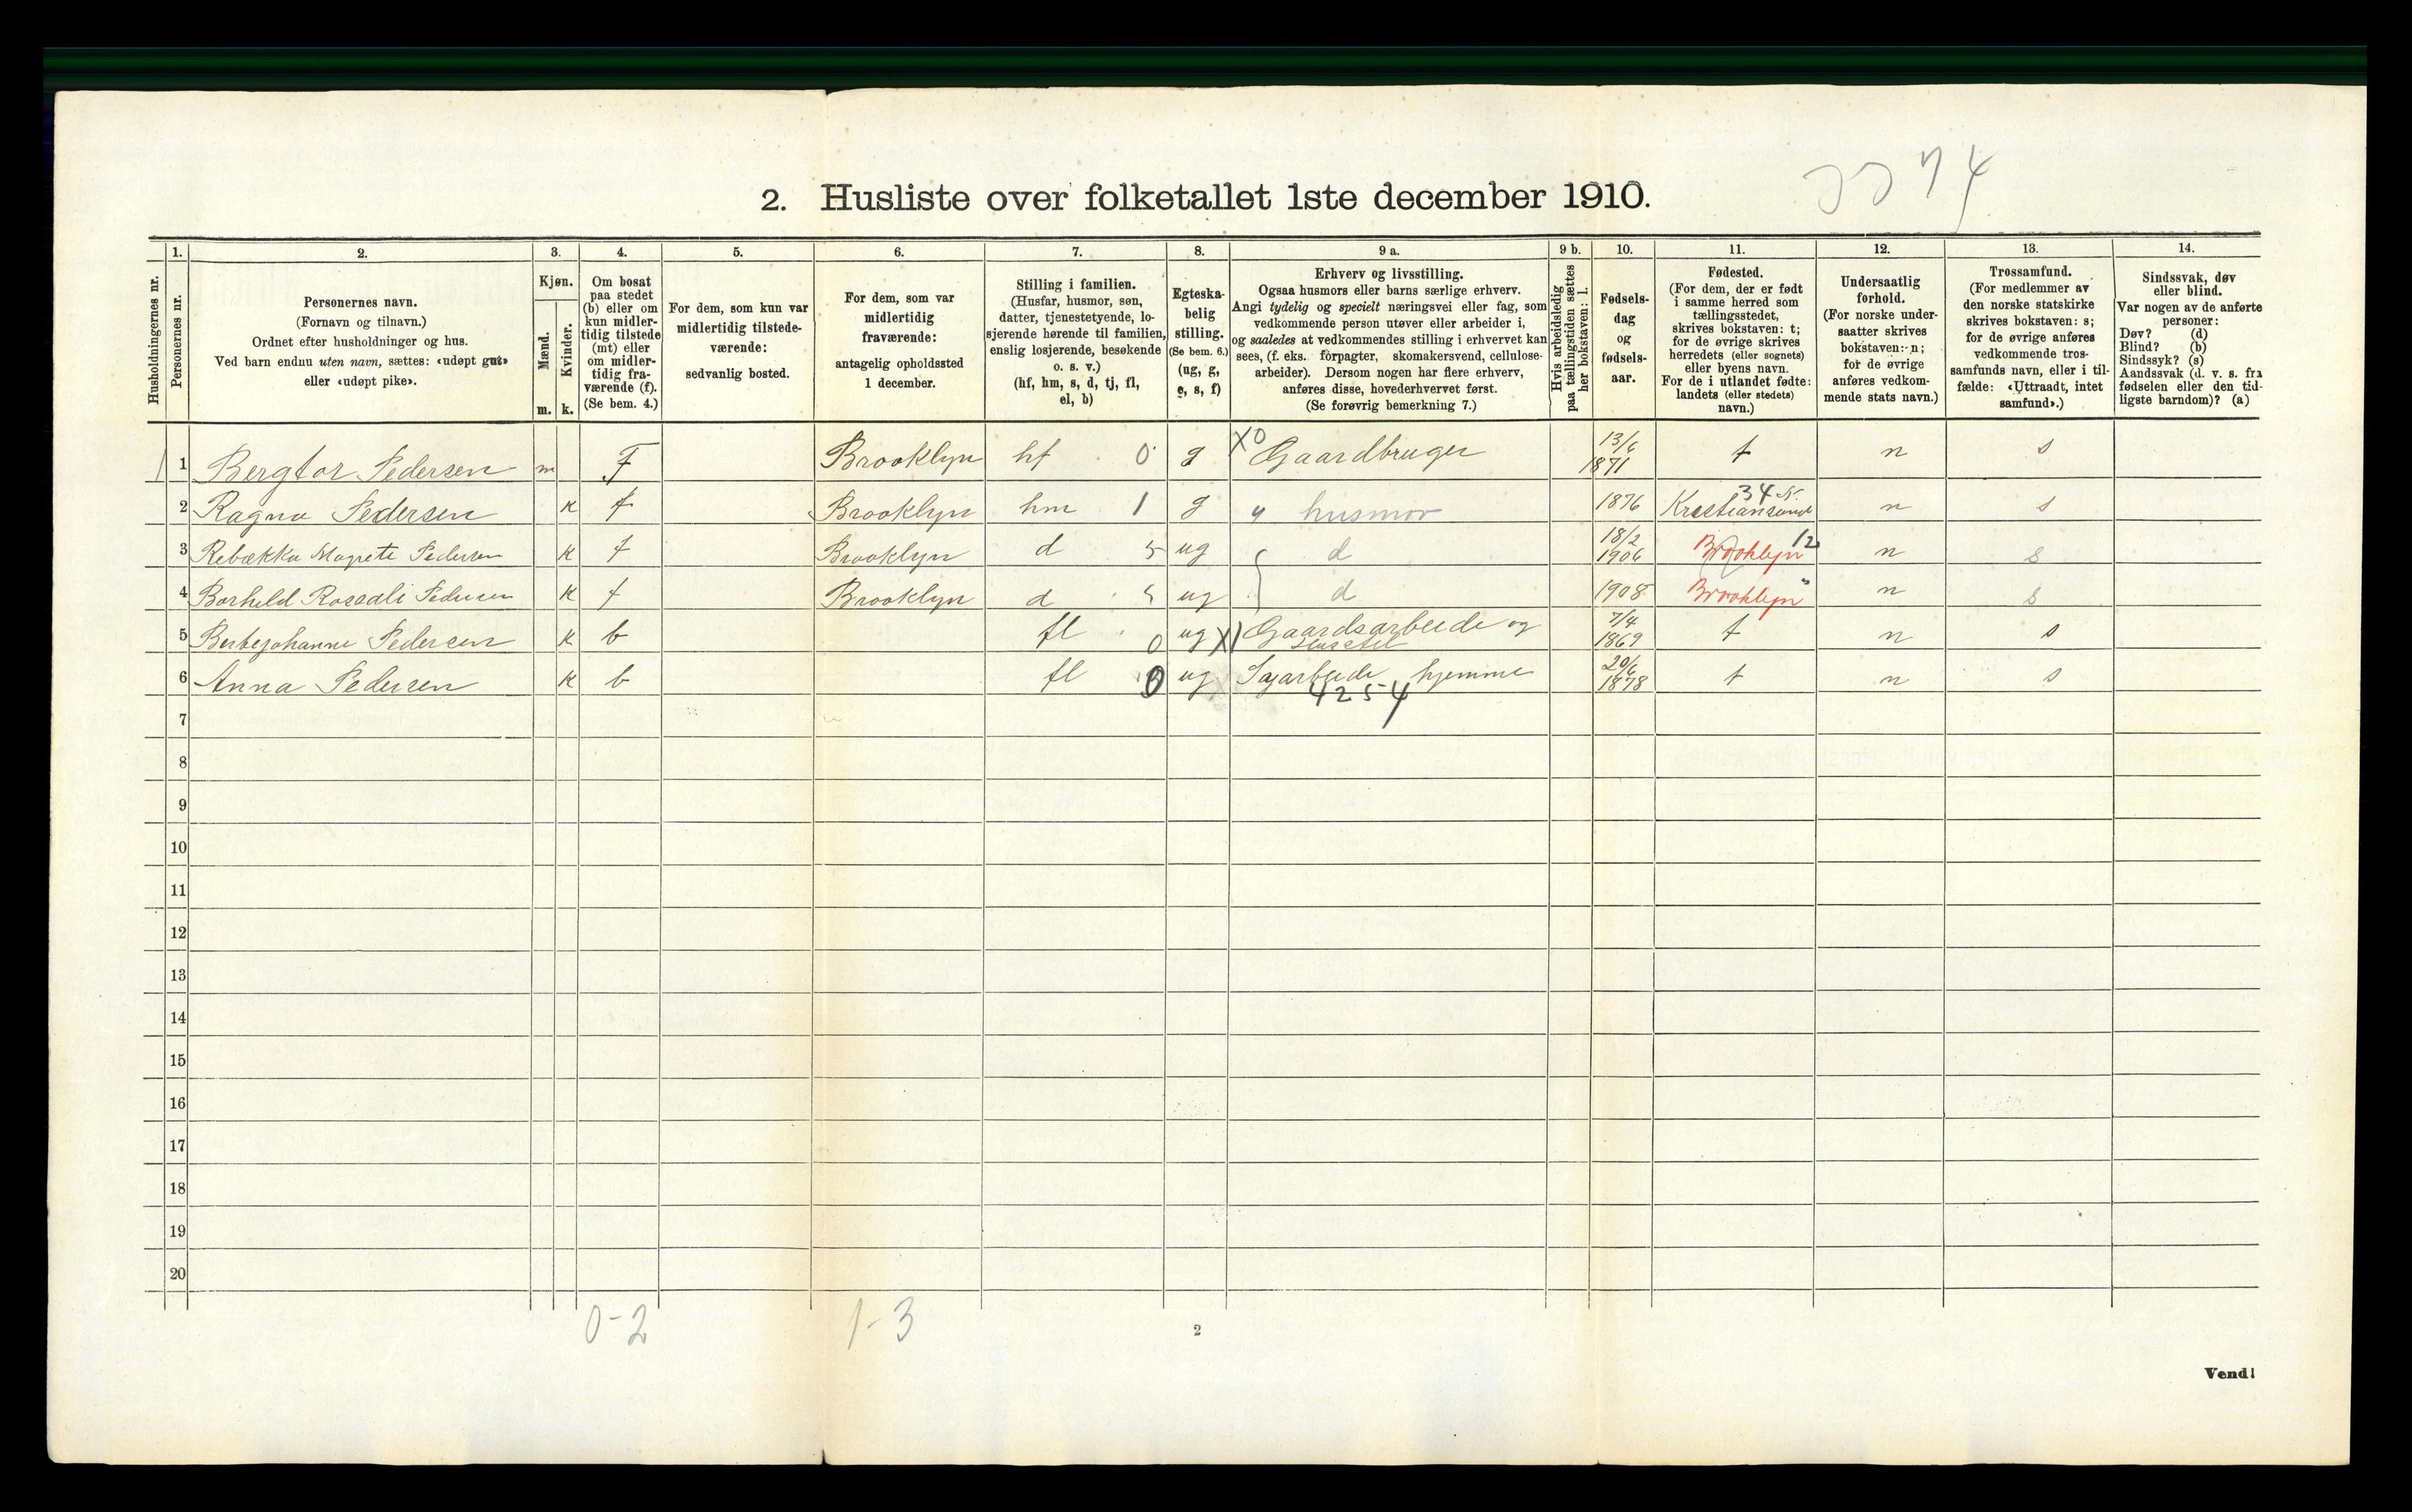 3374
2. Husliste over folketallet 1ste december 1910.
Husholdningernes nr.
1.
Personernes nr.
2.
Personernes navn.
(Fornavn og tilnavn.)
Ordnet efter husholdninger og hus.
Ved barn endnu uten navn, sættes: «udøpt gut»
eller «udøpt pike».
3.
Kjøn.
Mænd.
Kvinder.
m. k.
4.
Om bosat
paa stedet
(b) eller om
kun midler-
tidig tilstede
(mt) eller
om midler-
tidig fra-
værende (f).
(Se bem. 4.)
5.
For dem, som kun var
midlertidig tilstede-
værende:
sedvanlig bosted.
6.
For dem, som var
midlertidig
fraværende:
antagelig opholdssted
1 december.
7.
Stilling i familien.
(Husfar, husmor, søn,
datter, tjenestetyende, lo-
sjerende hørende til familien,
enslig losjerende, besøkende
o. s. v.)
(hf, hm, s, d, tj, fl,
el, b)
8.
Egteska-
belig
stilling.
(Se bem. 6.)
(ug, g,
e, s, f)
9 a.
Erhverv og livsstilling.
Ogsaa husmors eller barns særlige erhverv.
Angi tydelig og specielt næringsvei eller fag, som
vedkommende person utøver eller arbeider i,
og saaledes at vedkommendes stilling i erhvervet kan
sees, (f. eks. forpagter, skomakersvend, cellulose-
arbeider). Dersom nogen har flere erhverv,
anføres disse, hovederhvervet først.
(Se forøvrig bemerkning 7.)
9 b.
Hvis arbeidsledig
paa tællingstiden sættes
her bokstaven: l.
10.
Fødsels-
dag
og
fødsels-
aar.
11.
Fødested.
(For dem, der er født
i samme herred som
tællingsstedet,
skrives bokstaven: t;
for de øvrige skrives
herredets (eller sognets)
eller byens navn.
For de i utlandet fødte:
landets (eller stedets)
navn.)
12.
Undersaatlig
forhold.
(For norske under-
saatter skrives
bokstaven: n;
for de øvrige
anføres vedkom-
mende stats navn.)
13.
Trossamfund.
(For medlemmer av
den norske statskirke
skrives bokstaven: s;
for de øvrige anføres
vedkommende tros-
samfunds navn, eller i til-
fælde: «Uttraadt, intet
samfund».)
14.
Sindssvak, døv
eller blind.
Var nogen av de anførte
personer:
Døv? (d)
Blind? (b)
Sindssyk? (s)
Aandssvak (d. v. s. fra
fødselen eller den tid-
ligste barndom)? (a)
1 Bergtor Pedersen m F Brooklyn hf 0 g X0 Gaardbruger 13/6 1871 t n s
2 Ragna Pedersen k f Brooklyn hm 1 g husmor 1876 34 Kristiansund N. n s
3 Rebækka Magrete Pedersen k f Brooklyn d 5 ug d 18/2 1906 Brooklyn 12 n s
4 Borhild Rosali Pedersen k f Brooklyn d 5 ug d 1908 Brooklyn " n s
5 Pedersen k b fl 0 ug X1 Gaardsarbeide og 7/4 1869 t n s
Husstel
6 Anna Pedersen k b fl 0 ug Syarbeide hjemme 20/6 1878 t n s
4254
7
8
9
10
11
12
13
14
15
16
17
18
19
20
0-2 1-3
2
Vend!